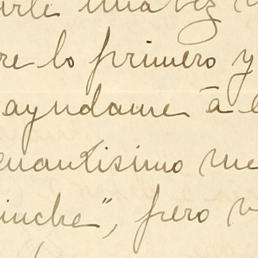 una vez
re lo primero y
ayudame á
uantisimo me
inche", pero v